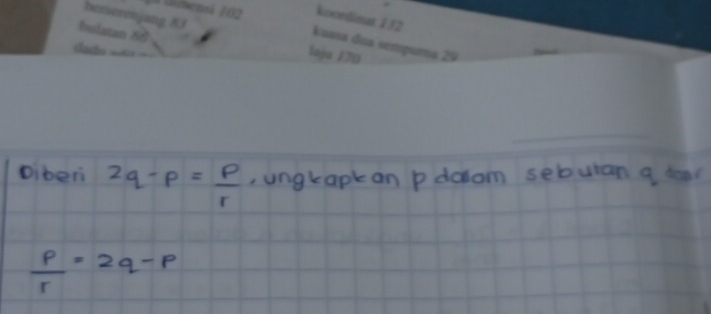 102
berterenjang 83
bulatan 86
koordinat 132
kuasa dua sempurna 29
laju 170
Diberi 2q - p = p/r, ungkapkan p dalam sebutan q
p/r = 2q - p